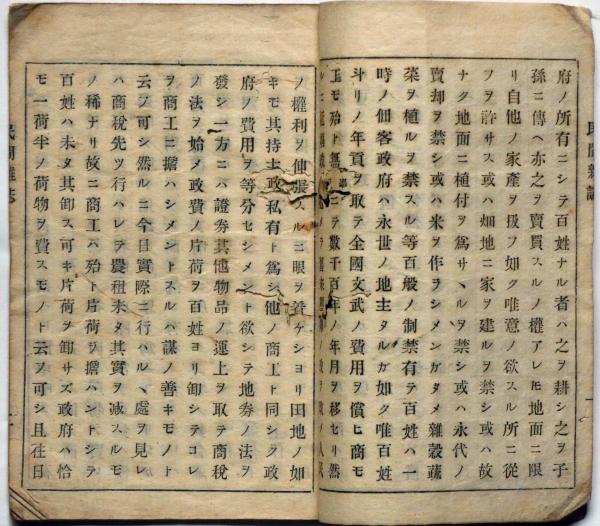 府ノ所有ニシテ百姓ナル者ハ之ヲ耕シ之ヲ子
孫ニ傳ヘ亦之ヲ賣買スルノ權アレ𪜈地面ニ限
リ自他ノ家產ヲ扱フ如ク唯意ノ欲スル所ニ從
フヲ許サス或ハ畑地ニ家ヲ建ルヲ禁シ或ハ故
ナク地面ニ植付ヲ爲サヽルヲ禁シ或ハ永代ノ
賣却ヲ禁シ或ハ米ヲ作ラシメンガタメ雜穀蔬
菜ヲ植ルヲ禁スル等百般ノ制禁有テ百姓ハ一
時ノ佃客政府ハ永世ノ地主タルガ如ク唯百姓
斗リノ年貢ヲ取テ全國文武ノ費用ヲ償ヒ商モ
工モ殆ト無 テ數千百年ノ年月ヲ移セリ然
ルニ
ノ權利ヲ伸張スルニ眼ヲ着ケシヨリ田地ノ如
キモ其持主ノ私有ト爲シ他ノ商工ト同シク政
府ノ費用ヲ等分セシメント欲シテ地券ノ法ヲ
發シ一方ニハ證券其他物品ノ運上ヲ取テ商稅
ノ法ヲ始メ政費ノ片荷ヲ百姓ヨリ卸シテコレ
ヲ商工ニ擔ハシメントスルハ謀ノ善キモノト
云フ可シ然ルニ今日實際ニ行ハルヽ處ヲ見レ
ハ商稅先ツ行ハレテ農租未タ其實ヲ減スルモ
ノ稀ナリ故ニ商工ハ殆ト片荷ヲ擔ハントシテ
百姓ハ未タ其卸ス可キ片荷ヲ卸サズ政府ハ恰
モ一荷半ノ荷物ヲ費スモノト云フ可シ且往日
民間雜誌